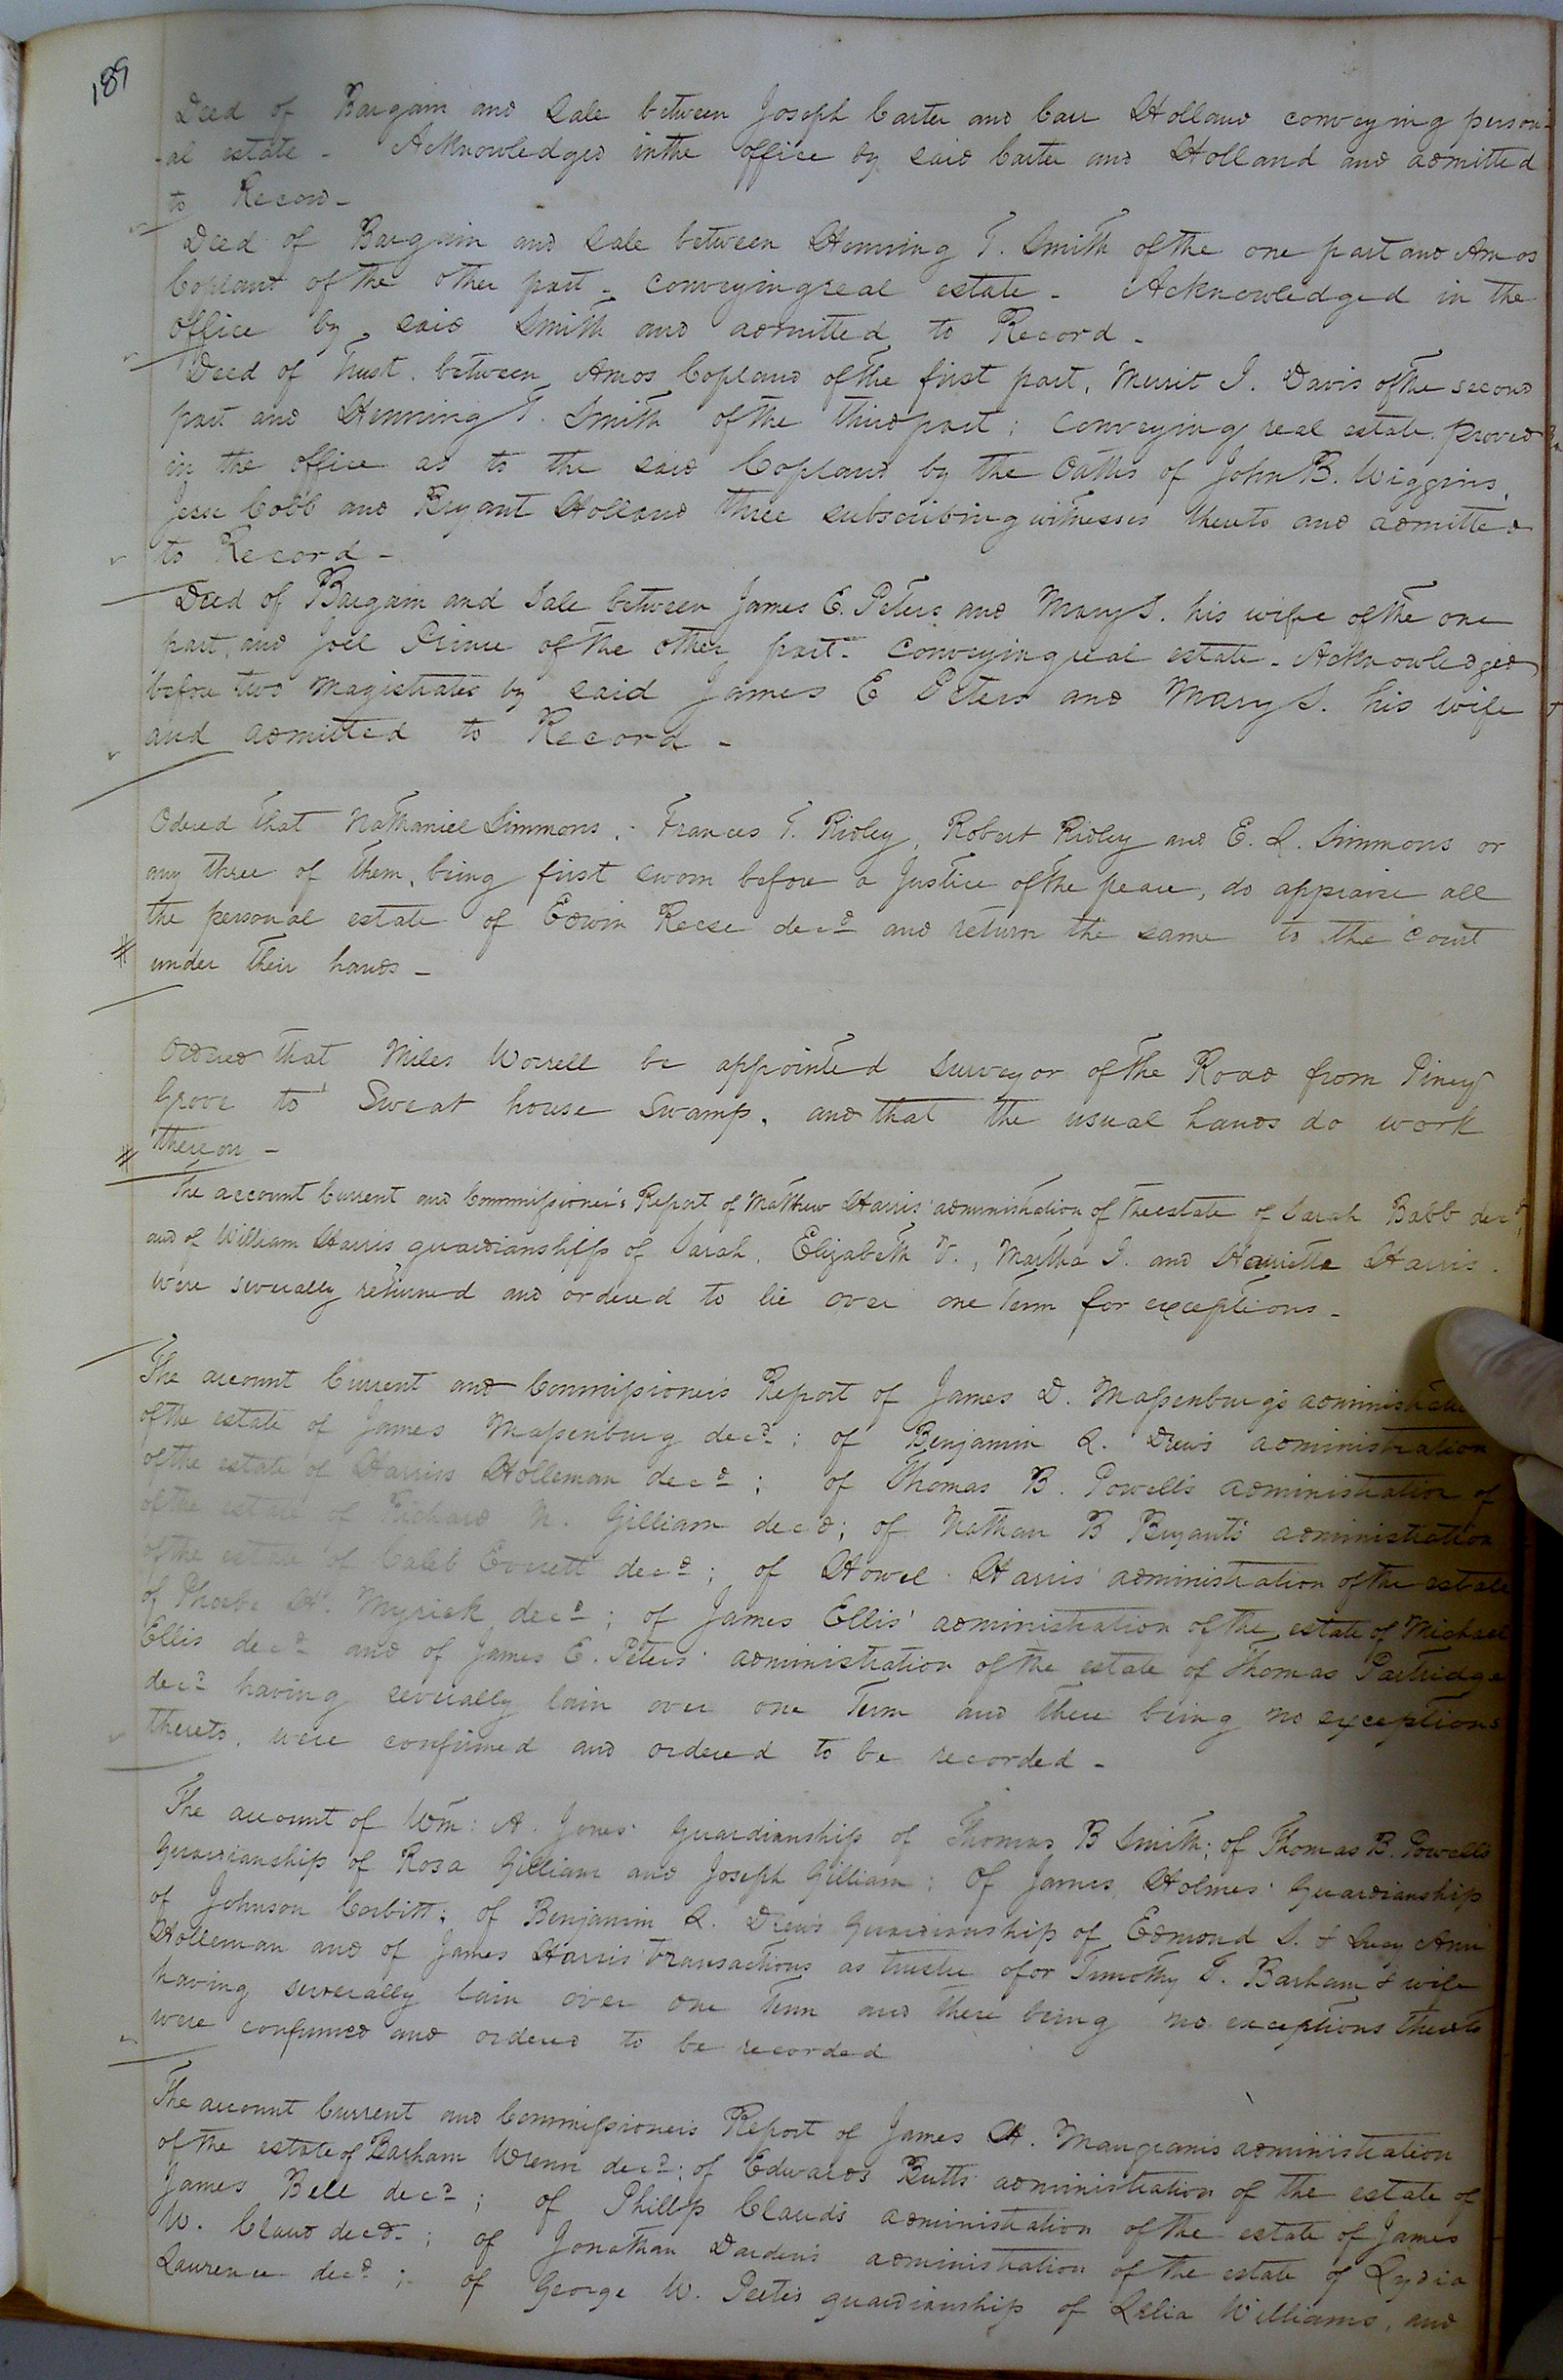 189
Deed of Bargain and Sale between Joseph Carter and Carr Holland conveying person-
-al estate - Acknowledged in the office by said Carter and Holland and admitted
to Record -
Deed of Bargain and Sale between Henning T. Smith of the one part and Amos
Copland of the other part - conveying real estate - Acknowledged in the
office by said Smith and admitted to Record -
Deed of Trust between Amos Copland of the first part, Merrit I. Davis of the second
part and Henning T. Smith of the third part; conveying real estate. Proved
in the office as to the said Copland by the Oaths of John B. Wiggins,
Jesse Cobb and Bryant Holland three subscribing witnesses thereto and admitted
to Record -
Deed of Bargain and Sale between James E. Peters and Mary S. his wife of the one
part, and Joel Prince of the other part - Conveying real estate - Acknowledged
before two Magistrates by said James E Peters and Mary S. his wife
and admitted to Record -
Odered that Nathaniel Simmons, Frances T. Ridley, Robert Ridley and E. L. Simmons or
any three of them, being first sworn before a Justice of the peace, do appraise all
the personal estate of Edwin Reese decd and return the same to the Court
under their hands -
Ordered that Miles Worrell be appointed Surveyor of the Road from Piney
Grove to Sweat house Swamp, and that the usual hands do work
thereon -
The account Current and Commissioner's Report of Matthew Harris' administration of the estate of Sarah Babb decd,
and of William Harris guardianship of Sarah, Elizabeth V., Martha I. and Harriette Harris.
were severally returned and ordered to lie over one Term for exceptions -
The account Current and Commissioners Report of James D. Massenburg's administration
of the estate of James Massenburg decd; of Benjamin L. Drew's administration
of the estate of Harriss Holleman decd; of Thomas B. Powell's administration of
of the estate of Richard N. Gilliam decd; of Nathan B Bryant's administration
of the estate of Caleb Everett decd; of Howel Harris' administration of the estate
of Phoebe H. Myrick decd; of James Ellis' administration of the estate of Michael
Ellis decd and of James E. Peters' administration of the estate of Thomas Partridge
decd having severally lain over one Term and there being no exceptions
thereto, were confirmed and ordered to be recorded -
The account of Wm: A. Jones' Guardianship of Thomas B Smith; of Thomas B. Powells
Guardianship of Rosa Gilliam and Joseph Gilliam; of James Holmes' Guardianship
of Johnson Corbitt; of Benjamin L. Drew's Guardianship of Edmond S. & Lucy Ann
Holleman and of James Harris' transactions as trustee ofor Timothy T. Barham & wife
having severally lain over one Term and there being no exceptions thereto
were confirmed and ordered to be recorded
The account Current and Commissioners Report of James H. Mangeams administration
of the estate of Barham Wrenn decd; of Edwards Butts administration of the estate of
James Bell decd; of Phillip Claud's administration of the estate of James
W. Claud decd; of Jonathan Darden's administration of the estate of Lydia
Laurence decd; of George W. Peete's guardianship of Lelia Williams, and